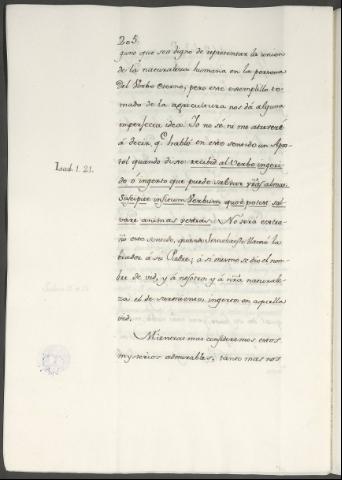 205.
guno que sea digno de representar la union
de la naturaleza humana en la persona
del Verbo Eterno; pero este exemplillo to-
mado de la agricultura nos dá alguna
imperfecta idea. Yo no sé, ni me atreveré
á decir q.e habló en este sentido un Apos-
tol quando dixo: recibid al Verbo ingeri-
Iacob. 1. 21.
do ó ingerto que puede salvar vrãs almas.
Suscipite insitum Verbum quod potest sal-
vare animas vestras. No será extra-
ño este sentido, quando Jesuchristo llamó la-
brador á su Padre; á si mesmo se dió el nom-
bre de vid, y á nosotros y á nrã naturale-
za el de sarmientos ingertos en aquella
vid.
Mientras mas consideremos estos
mysterios admirables, tanto mas nos